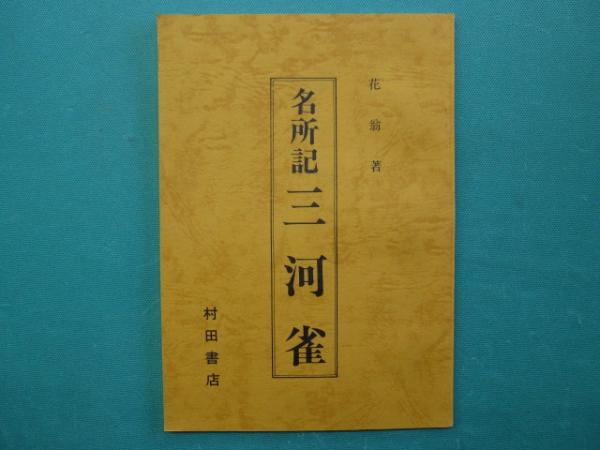 花翁著
名所記三河雀
村田書店